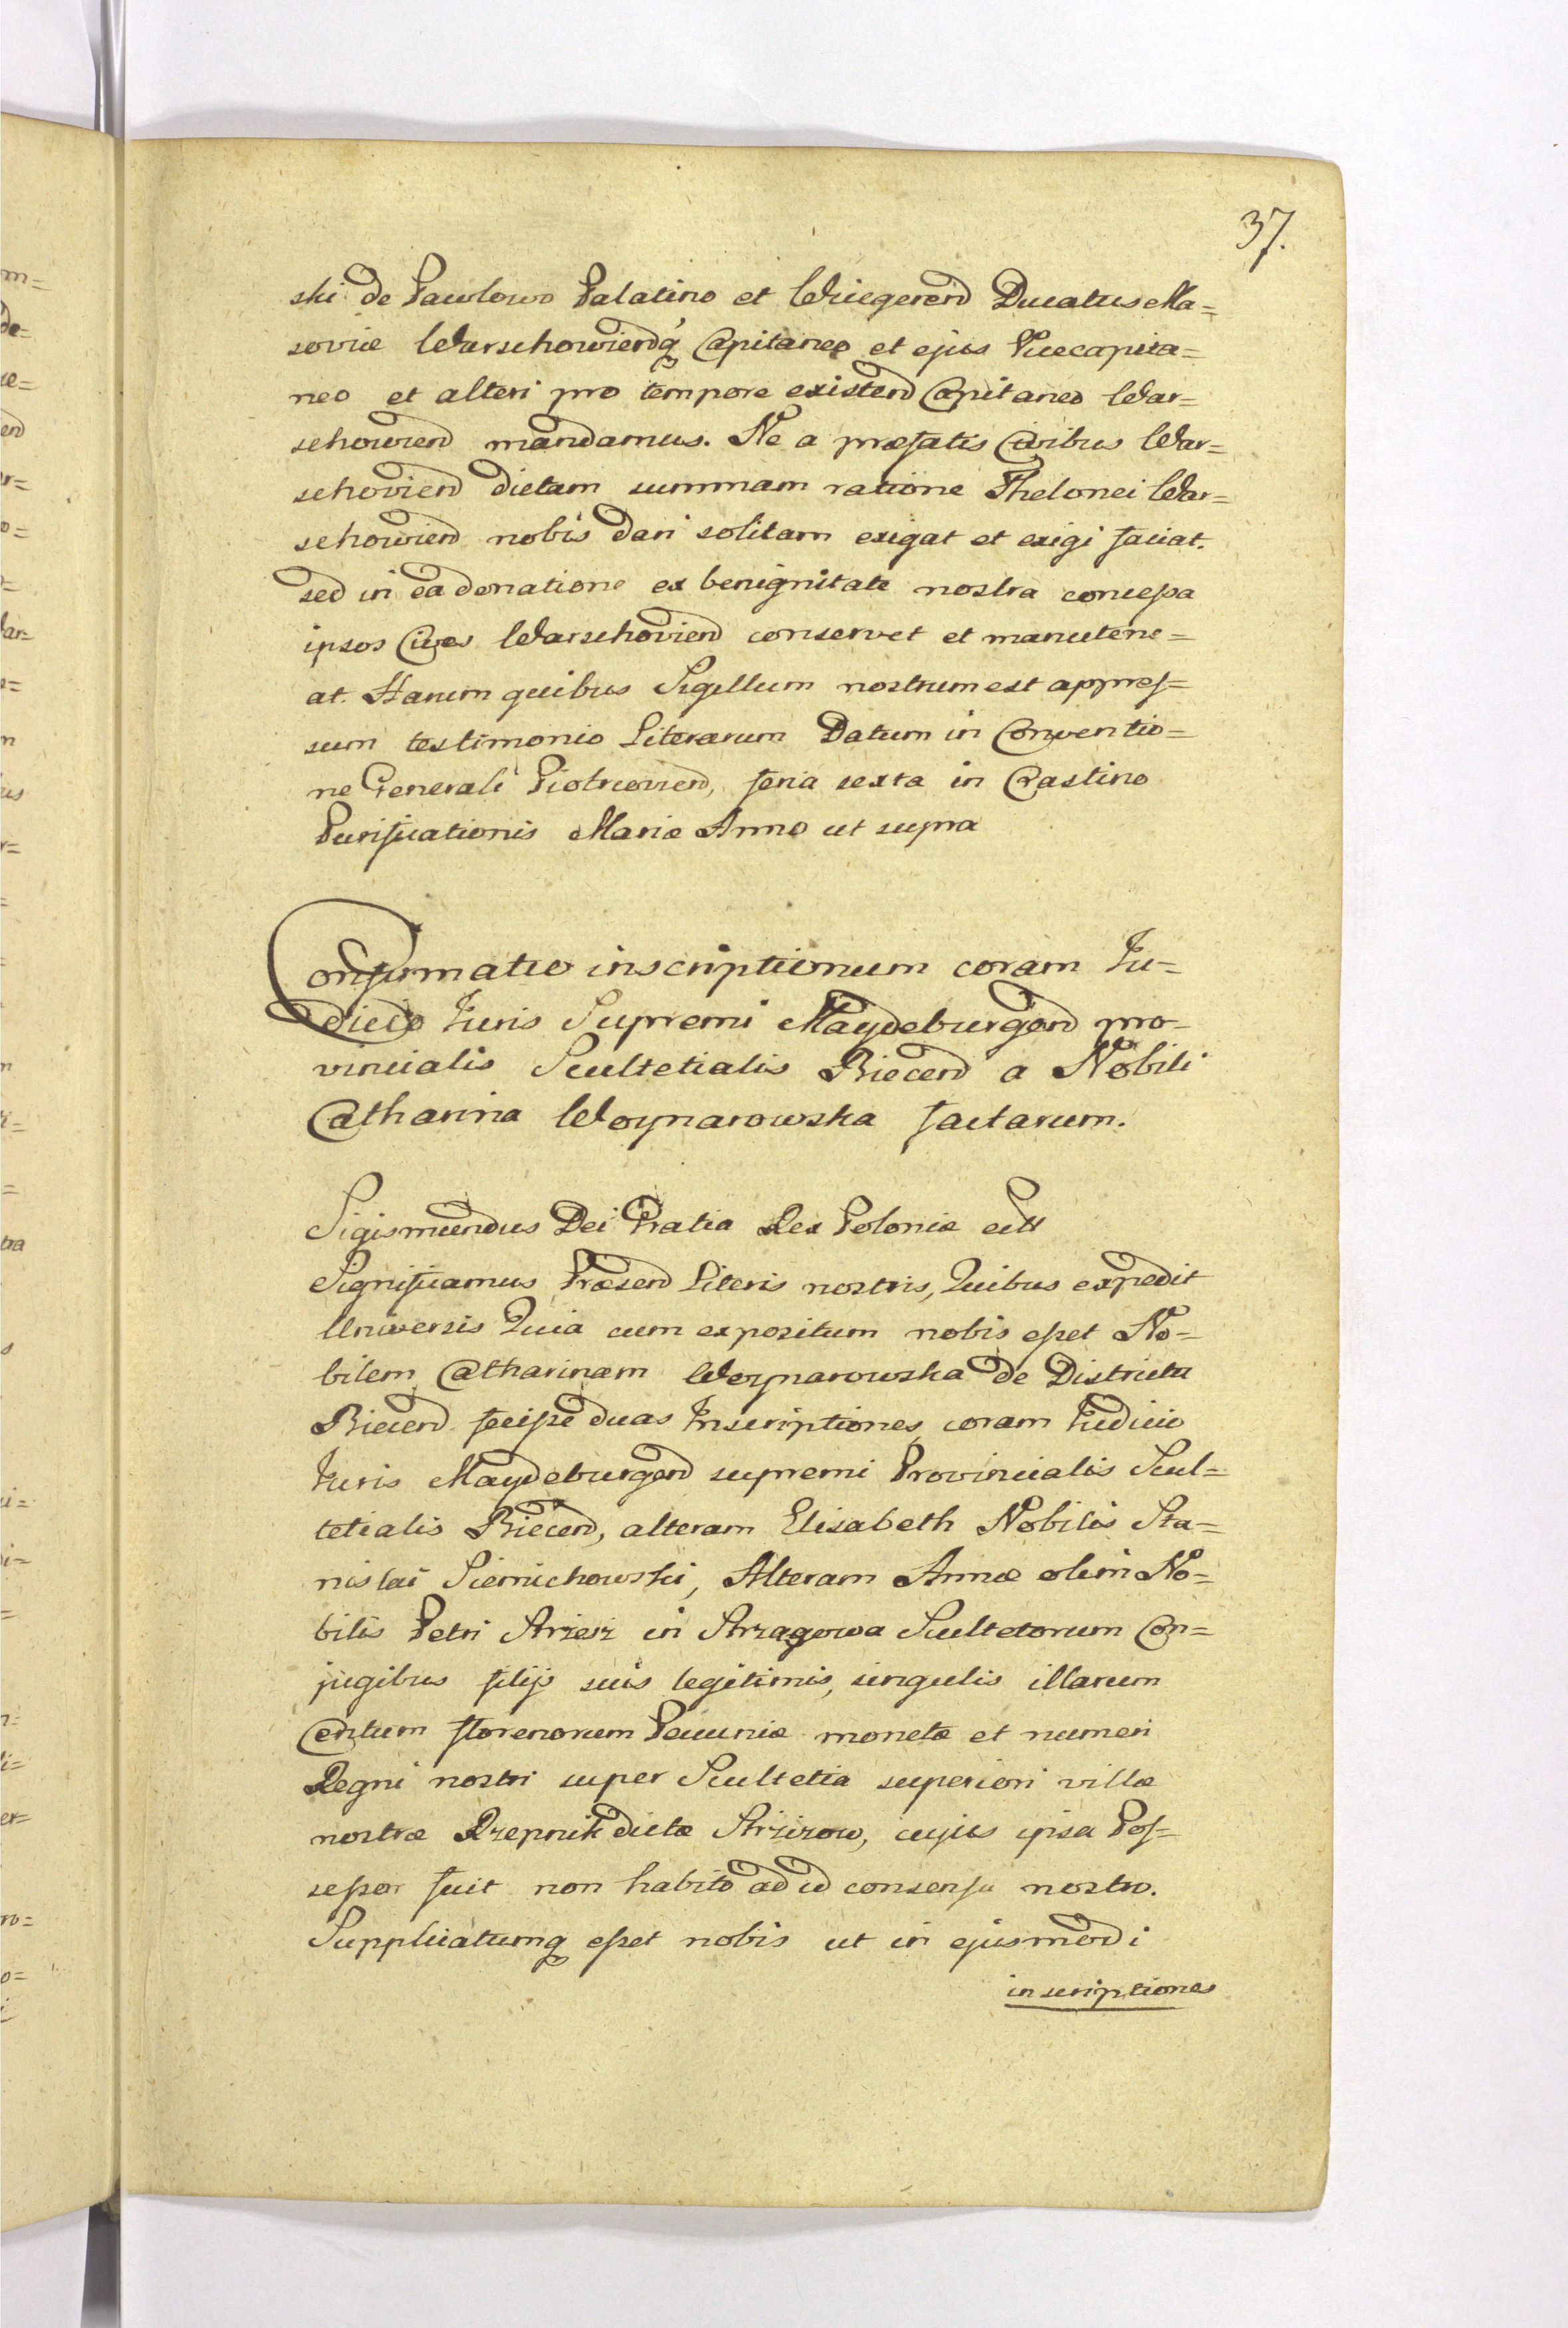 37.
ski de Pawlowo Palatino et Wicegerend Ducatus Ma=
soviæ Warschowiendq́ Capitaneo et ejus Vicecapita=
neo et alteri pro tempore existend Capitaneo War=
schowiend mandamus. Ne a præfatis Civibus War=
schoviend dictam summam ratione Thelonei War=
schowiend nobis dari solitam exigat et exigi faciat.
sed in ea donatione ex benignitate nostra concessa
ipsos Cives Warschoviend conservet et manutene=
at. Harum quibus Sigillum nostrum est appres=
sum testimonio Literarum Datum in Conventio=
ne Generali Piotrcoviend, feria sexta in Crastino
Purificationis Mariæ Anno ut supra
Confirmatio inscriptionum coram Ju=
dicio Juris Supremi Maydeburgend pro-
vincialis Scultetialis Biecend a Nobili
Catharina Woynarowska factarum.
Sigismundus Dei Gratia Rex Poloniæ ett
Significamus Præsend Literis nostris, Quibus expedit
Universis Quia cum expositum nobis esset No=
bilem Catharinam Woynarowska de Districtu
Biecend fecisse duas Inscriptiones coram Judicio
Juris Maydeburgend supremi Provincialis Scul=
tetialis Biecend, alteram Elisabeth Nobilis Sta=
nislai Siemichowski, Alteram Annæ olim No=
bilis Petri Arzesz in Arzagowa Scultetorum Con=
jugibus filijs suis legitimis, singulis illarum
Centum florenorum Pecuniæ monetæ et numeri
Regni nostri super Scultetia superiori villæ
nostræ Rzepnik dictæ Arzizow, cujus ipsa Pos=
sessor fuit non habito ad id consensu nostro.
Supplicatumq esset nobis ut in ejusmodi
inscriptiones